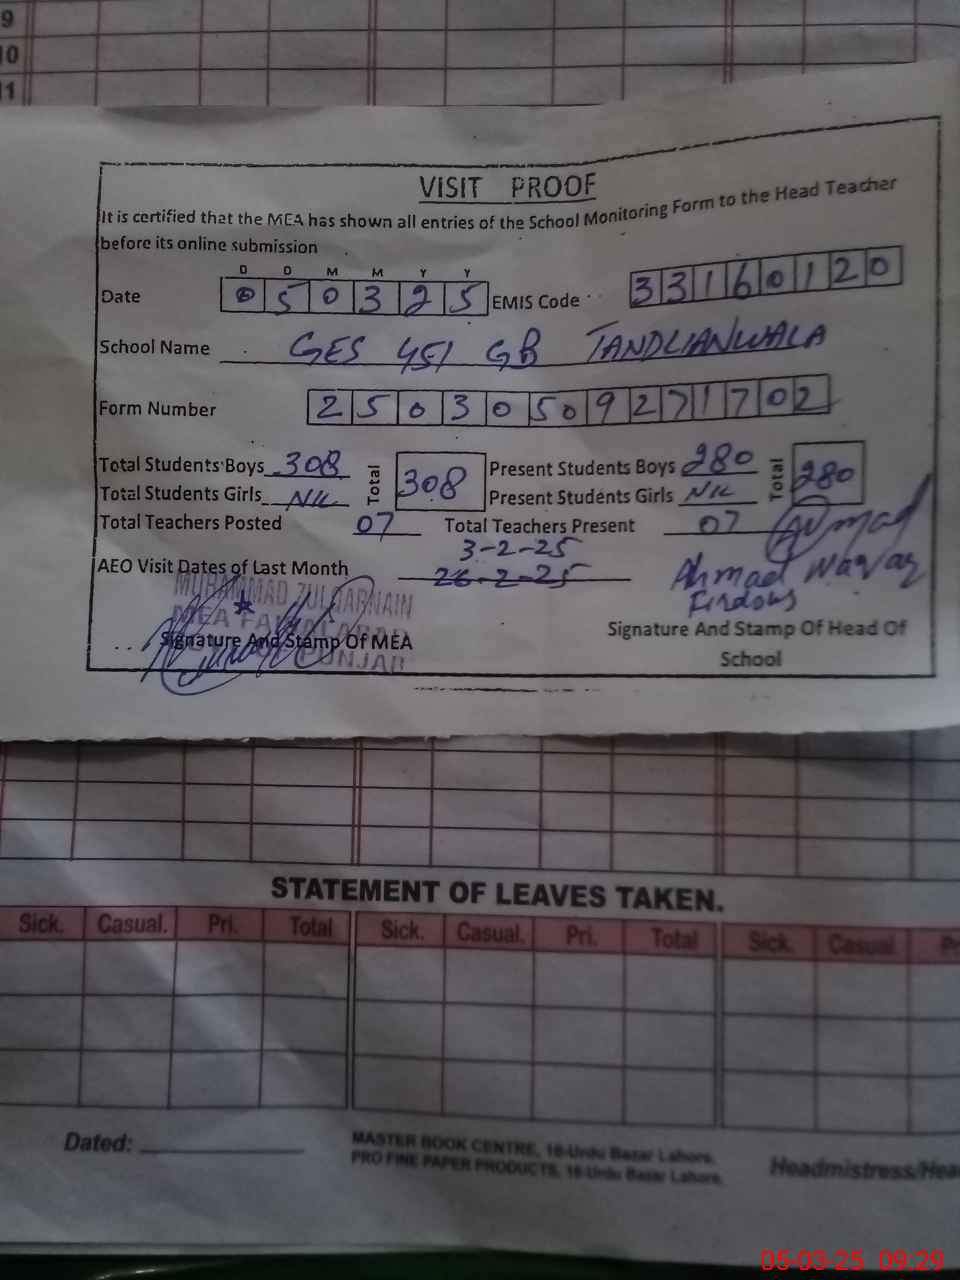 9
10
11
VISIT PROOF
It is certified that the MEA has shown all entries of the School Monitoring Form to the Head Teacher
before its online submission
D D M M Y Y
Date 0 5 0 3 2 5 EMIS Code 3 3 1 6 0 1 2 0
School Name GES 451 GB TANDLIANWALA
Form Number 2 5 0 3 0 5 0 9 2 7 1 7 0 2
Total Students Boys 308 Total 308 Present Students Boys 280 Total 280
Total Students Girls NIL Present Students Girls NIL
Total Teachers Posted 07 Total Teachers Present 07
3-2-25
AEO Visit Dates of Last Month 26-2-25
Ahmad Waqar
Firdous
MUHAMMAD ZULQARNAIN
MEA FAISALABAD
PUNJAB
Signature And Stamp Of MEA
Signature And Stamp Of Head Of
School
STATEMENT OF LEAVES TAKEN.
Sick. Casual. Pri. Total Sick. Casual. Pri. Total Sick. Casual. Pr
Dated:
MASTER BOOK CENTRE, 16-Urdu Bazar Lahore.
PRO FINE PAPER PRODUCTS, 16-Urdu Bazar Lahore.
Headmistress/Hea
05-03-25 09:29